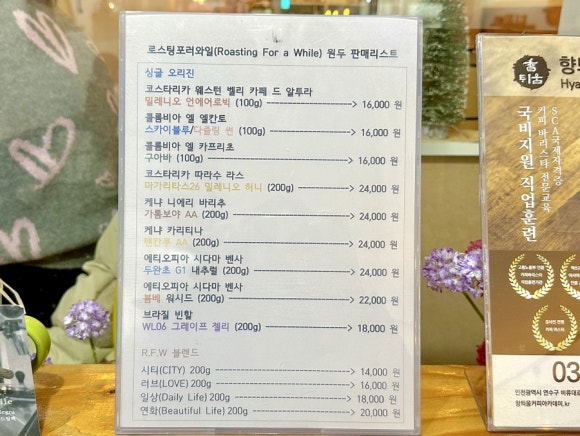 로스팅포러와일(Roasting For a While) 원두 판매리스트
싱글 오리진
코스타리카 웨스턴 벨리 카페 드 알투라
밀레니오 언에어로빅 (100g) ----------------------> 16,000 원
콜롬비아 엘 엘칸토
스카이블루/다즐링 썬 (100g) ----------------------> 16,000 원
콜롬비아 엘 카프리초
구아바 (100g) ----------------------> 16,000 원
코스타리카 따라수 라스
마가리타스26 밀레니오 허니 (200g) --------------> 24,000 원
케냐 니에리 바리추
가톰보야 AA (200g) ----------------------> 24,000 원
케냐 카리티나
텐칸푸 AA (200g) ----------------------> 24,000 원
에티오피아 시다마 벤사
두완초 G1 내추럴 (200g) ----------------------> 24,000 원
에티오피아 시다마 벤사
봄베 워시드 (200g) ----------------------> 22,000 원
브라질 빈할
WL06 그레이프 젤리 (200g) ----------------------> 18,000 원
R.F.W 블렌드
시티(CITY) 200g ----------------------> 14,000 원
러브(LOVE) 200g ----------------------> 16,000 원
일상(Daily Life) 200g ----------------------> 18,000 원
연화(Beautiful Life) 200g ----------------------> 20,000 원
향
튀움
Hya
SCA국제자격증
커피 바리스타 전문교육
국비지원 직업훈련
03
인천광역시 연수구 비류대로